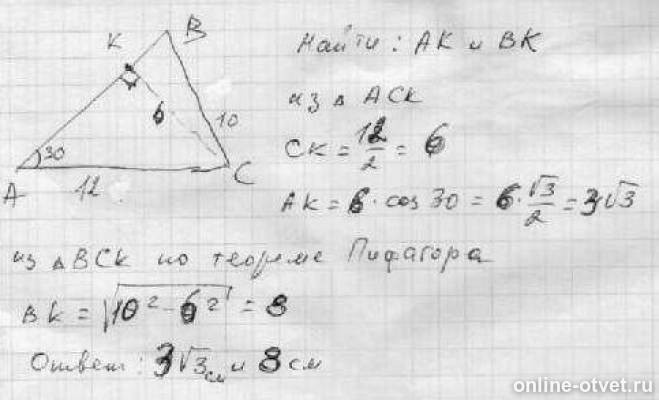 K B
6 10
30
A 12 C
Найти: AK и BK
из △ ACK
CK = 12/2 = 6
AK = 6 · cos 30 = 6 · √3/2 = 3√3
из △BCK по теореме Пифагора
BK = √10² - 6² = 8
Ответ: 3√3 см и 8 см
online-otvet.ru